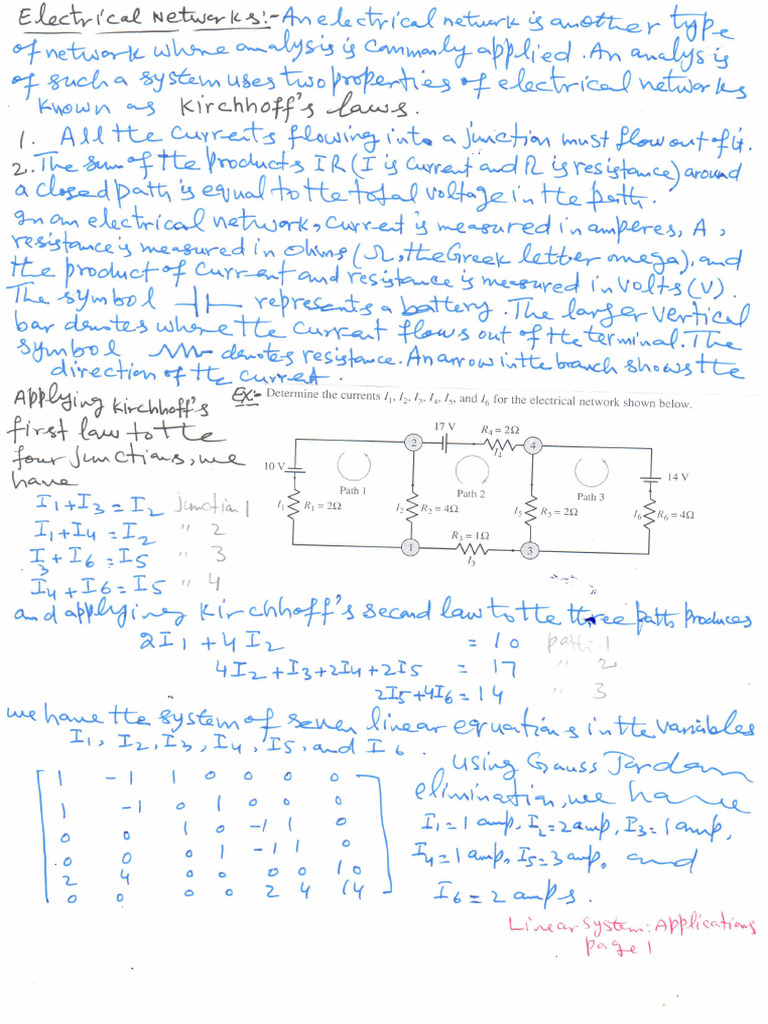 Electrical Networks:- An electrical network is another type
of network where analysis is commonly applied. An analysis
of such a system uses two properties of electrical networks
known as Kirchhoff's laws.
1. All the currents flowing into a junction must flow out of it.
2. The sum of the products IR (I is current and R is resistance) around
a closed path is equal to the total voltage in the path.
In an electrical network, current is measured in amperes, A,
resistance is measured in ohms (Ω, the Greek letter omega), and
the product of current and resistance is measured in volts (V).
The symbol represents a battery. The larger vertical
bar denotes where the current flows out of the terminal. The
symbol denotes resistance. An arrow in the branch shows the
direction of the current.
EX:- Determine the currents I1, I2, I3, I4, I5, and I6 for the electrical network shown below.
Applying Kirchhoff's
first law to the
four junctions, we
have
I1+I3=I2 junction 1
I1+I4=I2 " 2
I3+I6=I5 " 3
I4+I6=I5 " 4
17 V R4 = 2Ω
2 I4 4
10 V 14 V
Path 1 Path 2 Path 3
I1 R1 = 2Ω I2 R2 = 4Ω I5 R5 = 2Ω I6 R6 = 4Ω
R3 = 1Ω
1 I3 3
and applying Kirchhoff's second law to the three paths produces
2I1+4I2 = 10 path 1
4I2+I3+2I4+2I5 = 17 " 2
2I5+4I6=14 " 3
we have the system of seven linear equations in the variables
I1, I2, I3, I4, I5, and I6.
using Gauss Jordan
elimination, we have
I1=1 amp, I2=2 amp, I3=1 amp,
I4=1 amp, I5=3 amp, and
I6=2 amps.
1 -1 1 0 0 0 0
1 -1 0 1 0 0 0
0 0 1 0 -1 1 0
0 0 0 1 -1 1 0
2 4 0 0 0 0 10
0 0 0 0 2 4 14
Linear System: Applications
page 1